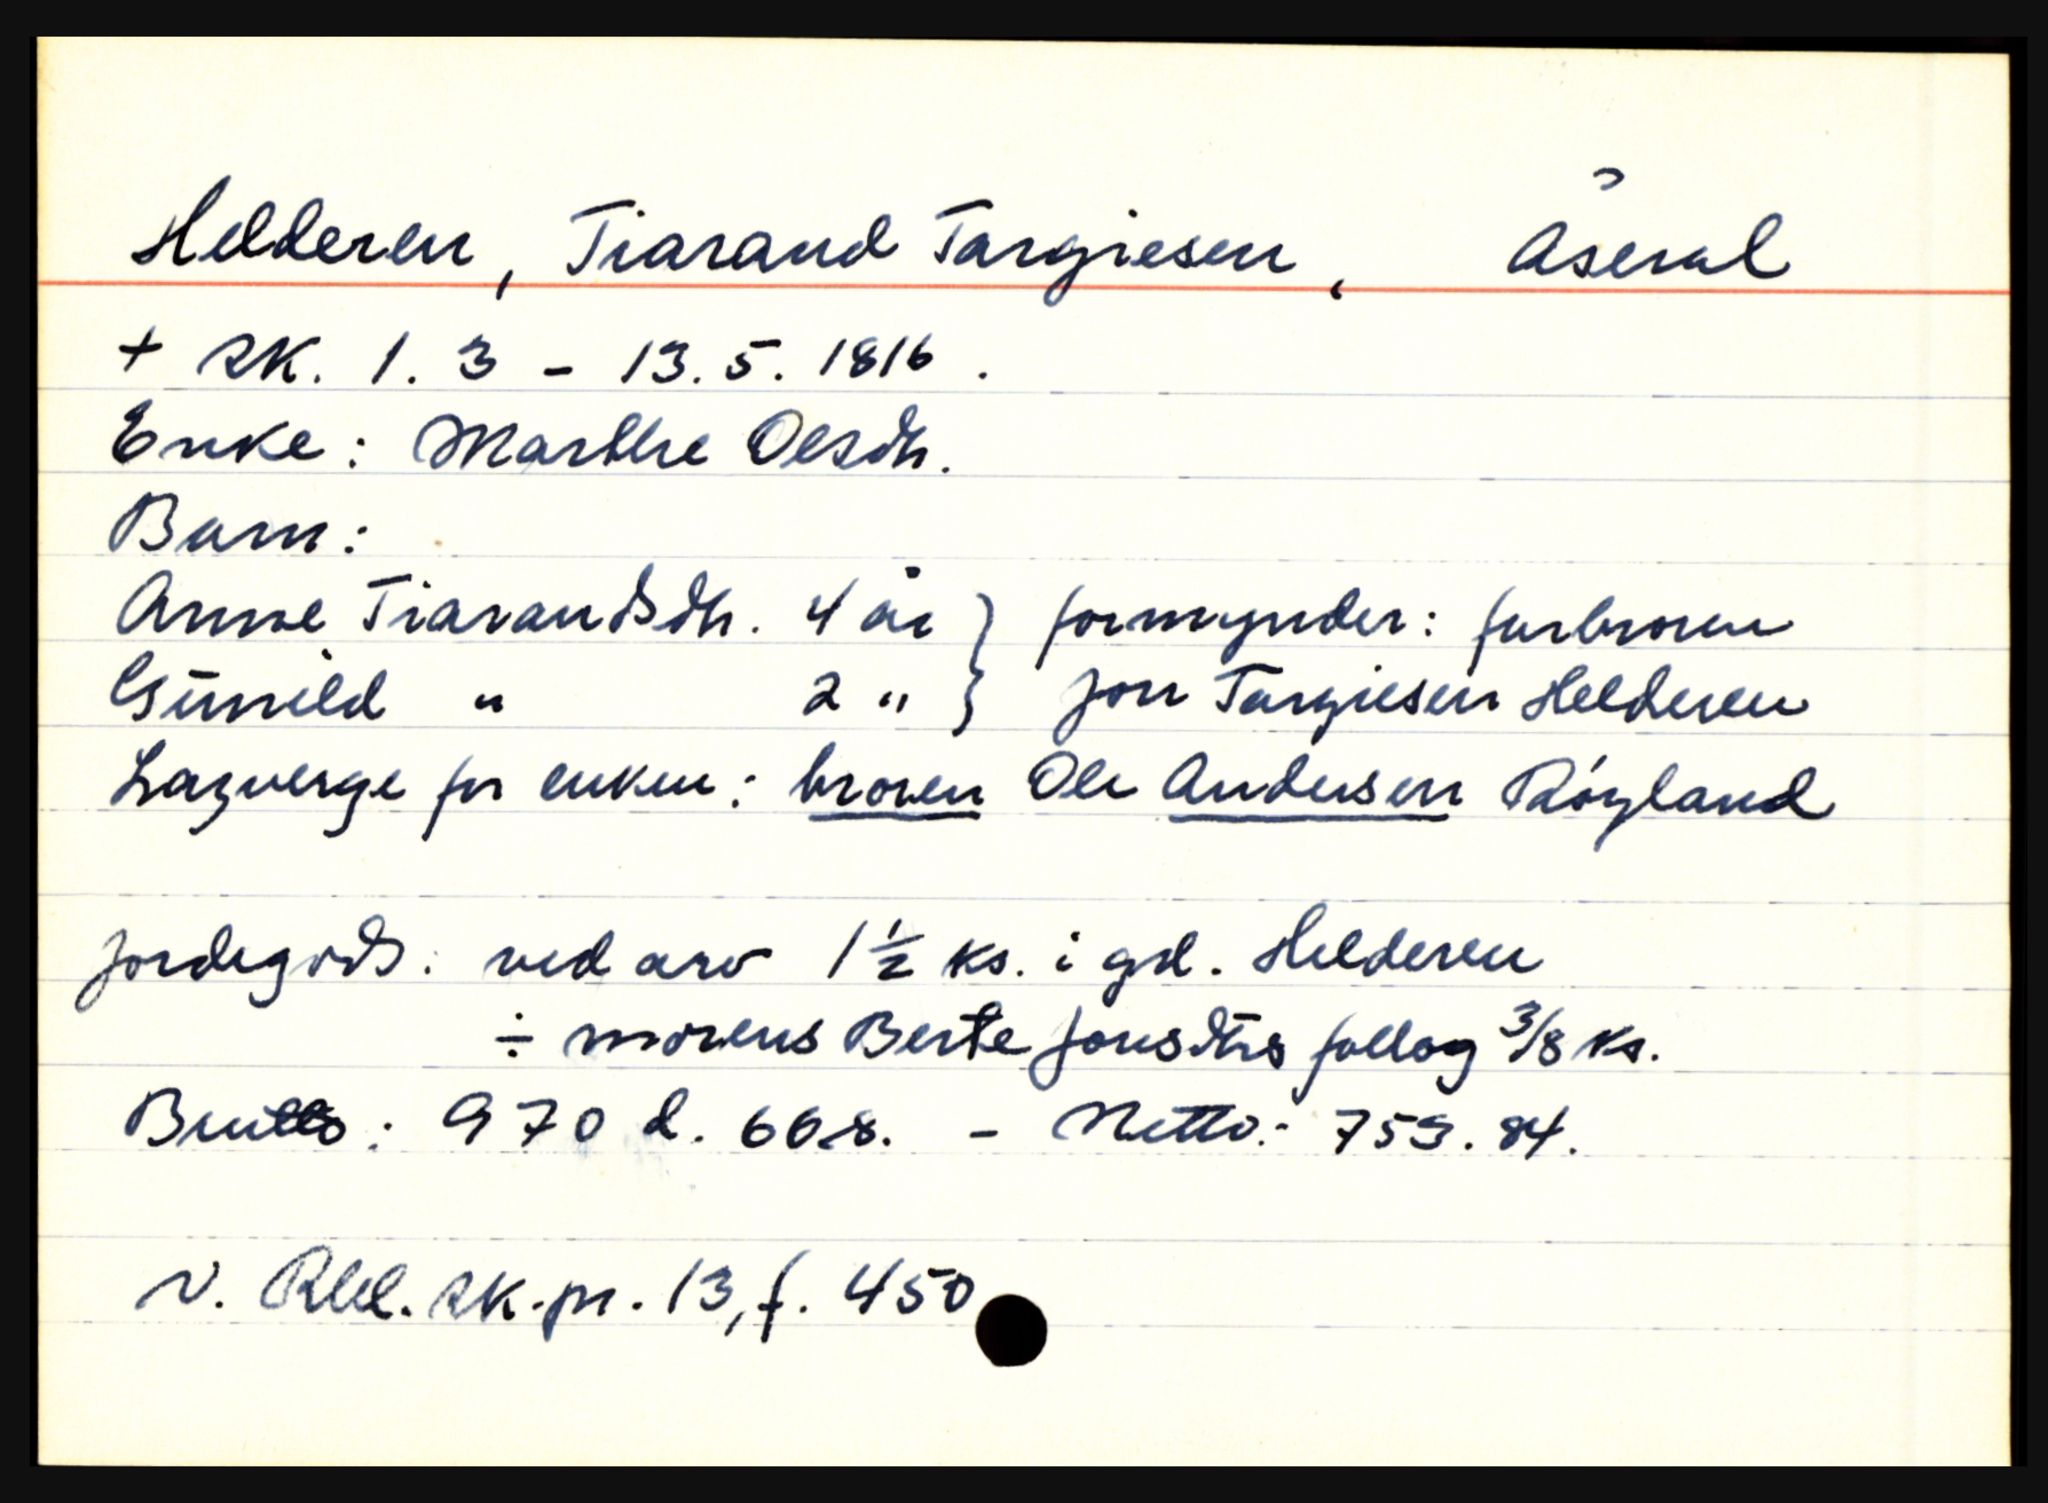 Helderen, Tiarand Targiesen, Åseral
+ sk. 1. 3 - 13. 5. 1816.
Enke: Marthe Olsdtr.
Barn:
Anne Tiarandsdtr. 4 år } formynder: farbroren
Gunild " 2 " } Jon Targiesen Helderen
Lagverge for enken: broren Ole Andersen Röyland
Jordegods: ved arv 1 1/2 ks. i gd. Helderen
÷ morens Berte Jonsdtrs follog 3/8 ks.
Brutto: 970 d. 66 s. - Netto: 759. 84.
N. Rbd. sk. pr. 13, f. 450